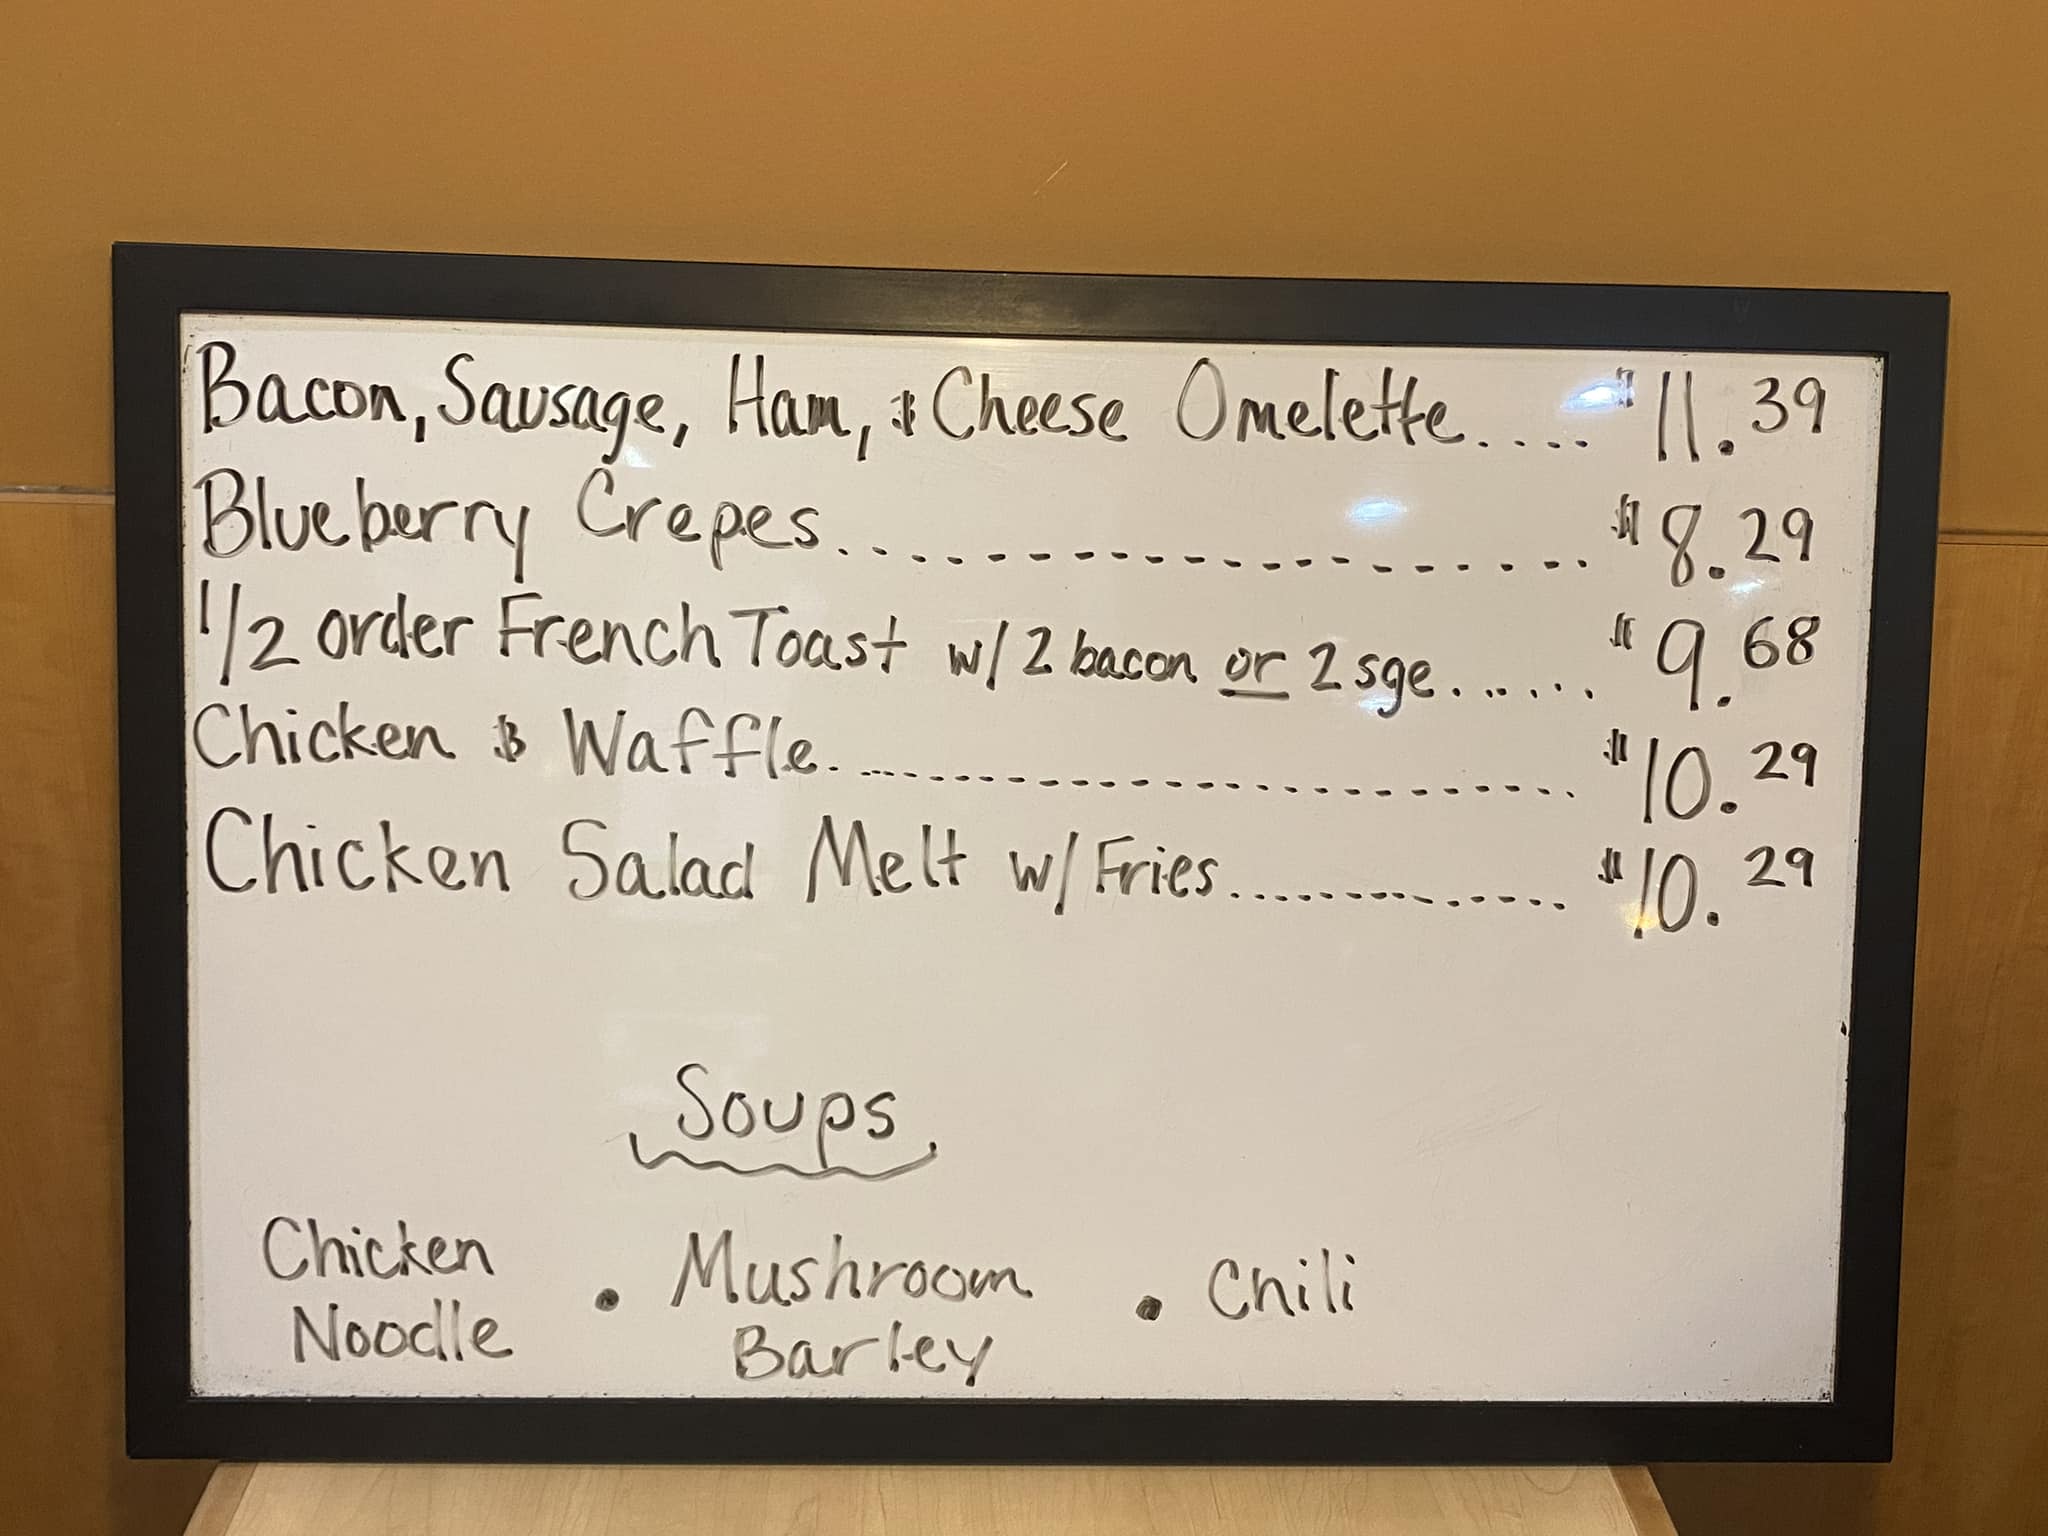 Bacon, Sausage, Ham, & Cheese Omelette.... $11.39
Blueberry Crepes..................... $8.29
1/2 order French Toast w/ 2 bacon or 2 sge....... $9.68
Chicken & Waffle........................ $10.29
Chicken Salad Melt w/ Fries.............. $10.29
Soups
Chicken Noodle • Mushroom Barley • Chili